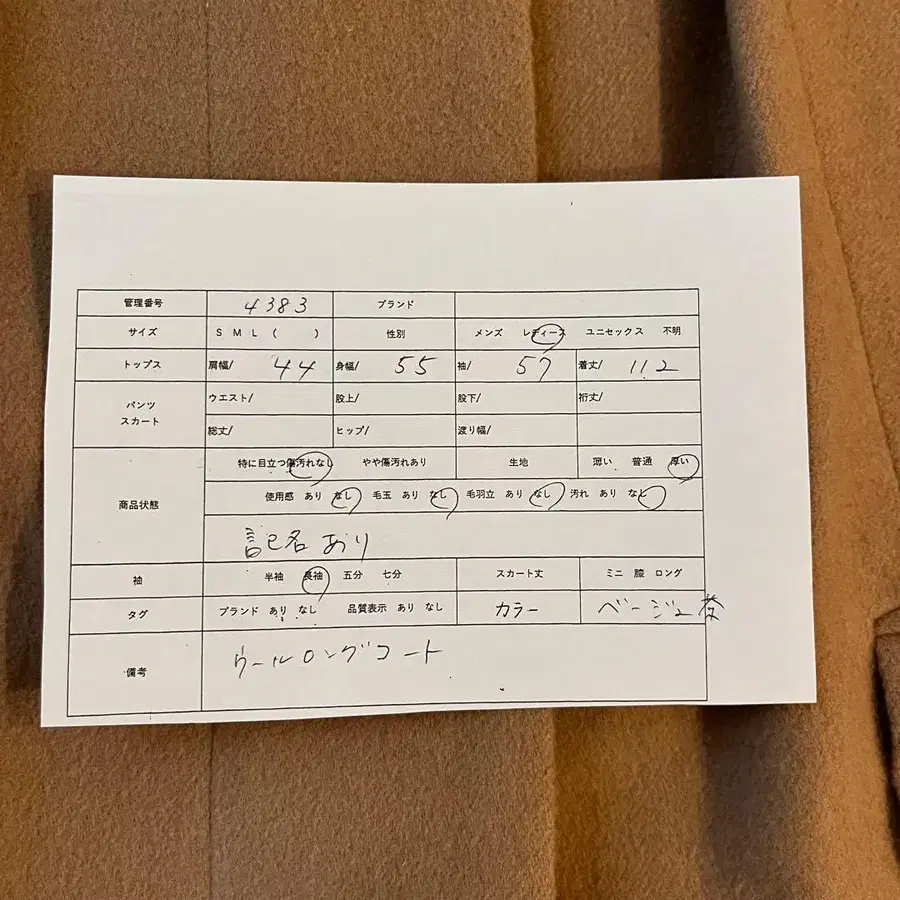 管理番号 4383 ブランド
サイズ S M L ( ) 性別 メンズ レディース ユニセックス 不明
トップス 肩幅/ 44 身幅/ 55 袖/ 57 着丈/ 112
パンツ スカート ウエスト/ 股上/ 股下/ 裄丈/
総丈/ ヒップ/ 渡り幅/
商品状態 特に目立つ傷汚れなし やや傷汚れあり 生地 薄い 普通 厚い
使用感 あり なし 毛玉 あり なし 毛羽立 あり なし 汚れ あり なし
記名あり
袖 半袖 長袖 五分 七分 スカート丈 ミニ 膝 ロング
タグ ブランド あり なし 品質表示 あり なし カラー ベージュ茶
備考 ウールロングコート